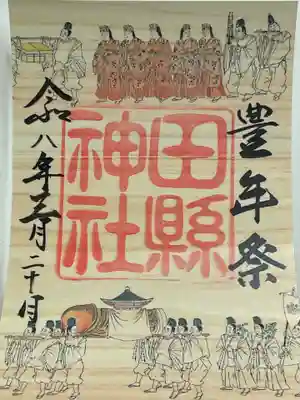 豊年祭
田縣
神社
令和八年三月二十日